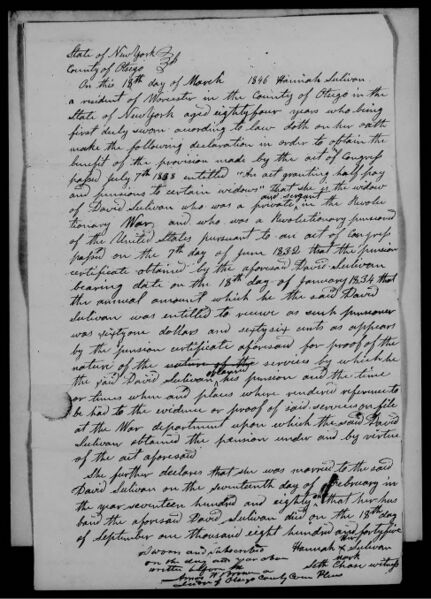 State of New York } ss
County of Otsego
On this 18th day of March 1846 Hannah Sulivan
a resident of Worcester in the County of Otsego in the
State of New York aged eighty four years who being
first duly sworn acording to law doth on her oath
make the following declaration in order to obtain the
benefit of the provision made by the act of Congress
passed July 7th 1838 entitled "An act granting half pay
and pensions to certain widows" that she is the widow
and sergeant
of David Sulivan who was a private in the Revolu
tionary War, and who was a Revolutionary pensioner
of the United States pursuant to an act of Congress
passed on the 7th day of June 1832 that the pension
certificate obtained by the aforesaid David Sulivan
bearing date on the 18th day of January 1834 that
the annual amount which he the said David
Sulivan was entitled to receive as such pensioner
was sixty one dollars and sixty six cents as appears
by the pension certificate aforesaid for proof of the
nature of the services by which he
obtained
the said David Sulivan his pension and the time
or times when and places where rendered reference to
be had to the evidence or proof of said services on file
at the War department upon which the said David
Sulivan obtained the pension under and by virtue
of the act aforesaid
She further declares that she was married to the said
David Sulivan on the seventeenth day of February in
the year seventeen hundred and eighty that her hus
band the aforesaid David Sulivan died on the 18th day
of September one thousand eight hundred and forty five
Sworn and subscribed
on the day and year above
written before me
her
Hannah x Sulivan
mark
Seth Chase witness
Judge of Otsego County Com Pleas